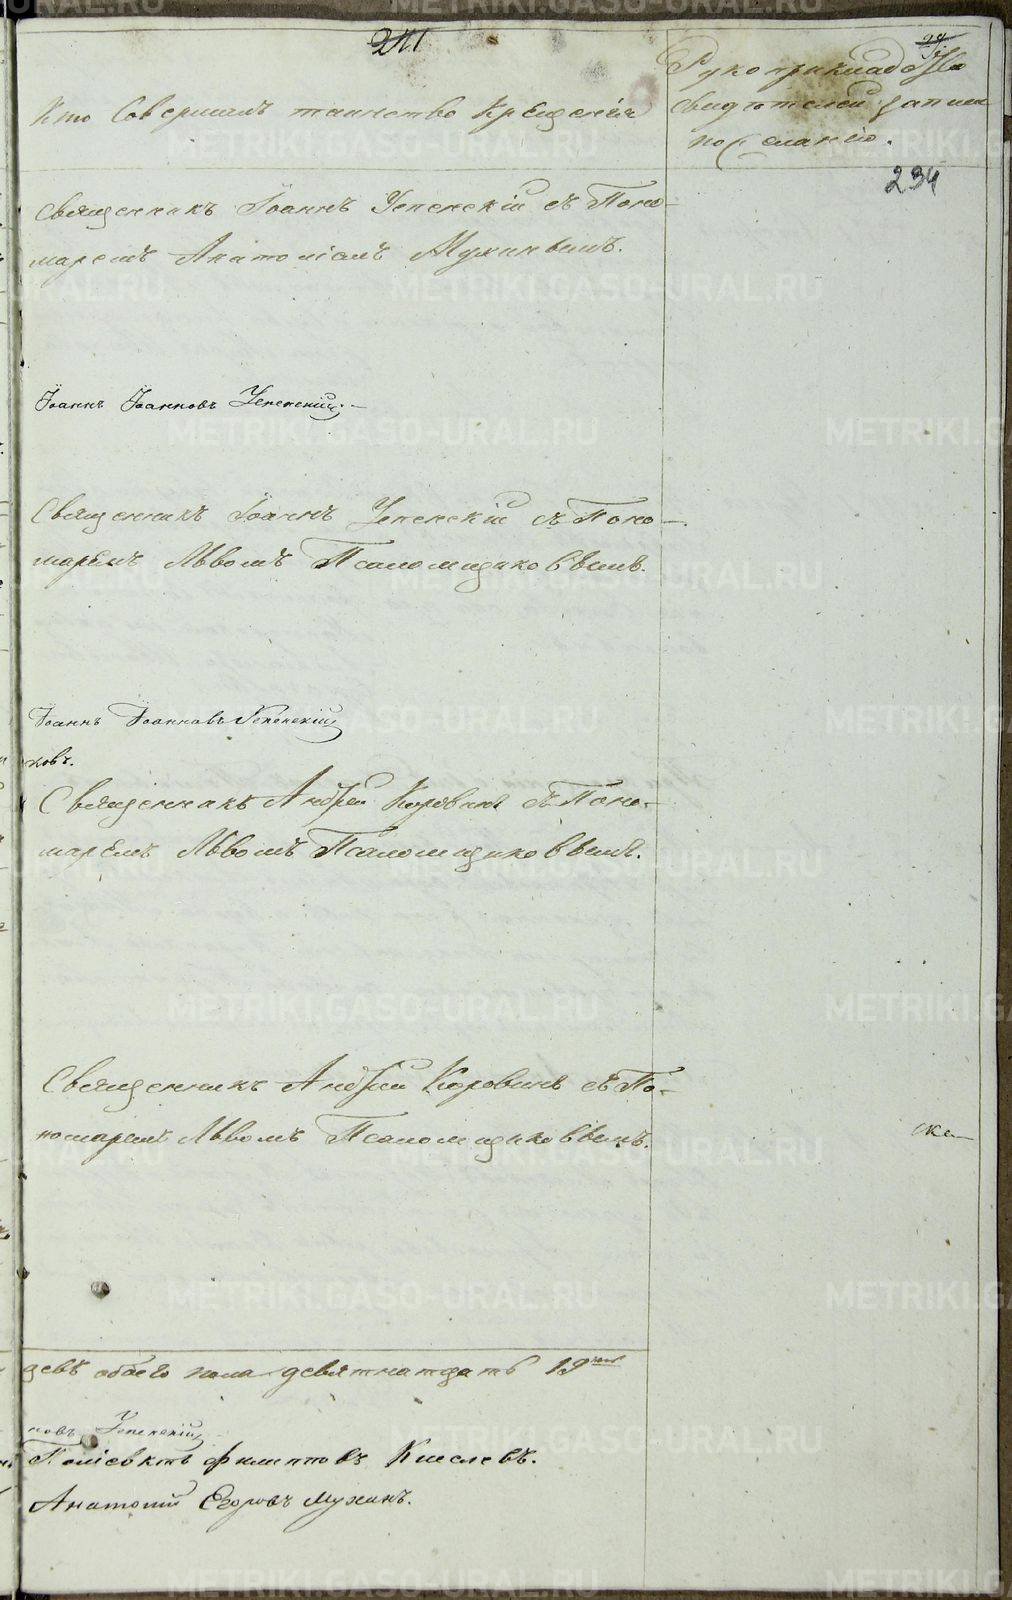 241
Кто Совершалъ таинство Крещенія
Рукоприкладство
свидѣтелей записи
по желанію.
234
Священникъ Іоаннъ Успенскій съ Поно-
маремъ Анатоліемъ Мухинымъ.
Іоаннъ Іоанновъ Успенскій
Священникъ Іоаннъ Успенскій съ Поно-
маремъ Львомъ Псаломщиковымъ.
Іоаннъ Іоанновъ Успенскій
ковъ.
Священникъ Андрей Коровинъ съ Поно-
маремъ Львомъ Псаломщиковымъ.
Священникъ Андрей Коровинъ съ По-
номаремъ Львомъ Псаломщиковымъ.
девъ обоего пола девятнатцать 19
новъ Успенскій
Филипповъ Киселевъ.
Анатолій Егоровъ Мухинъ.
METRIKI.GASO-URAL.RU